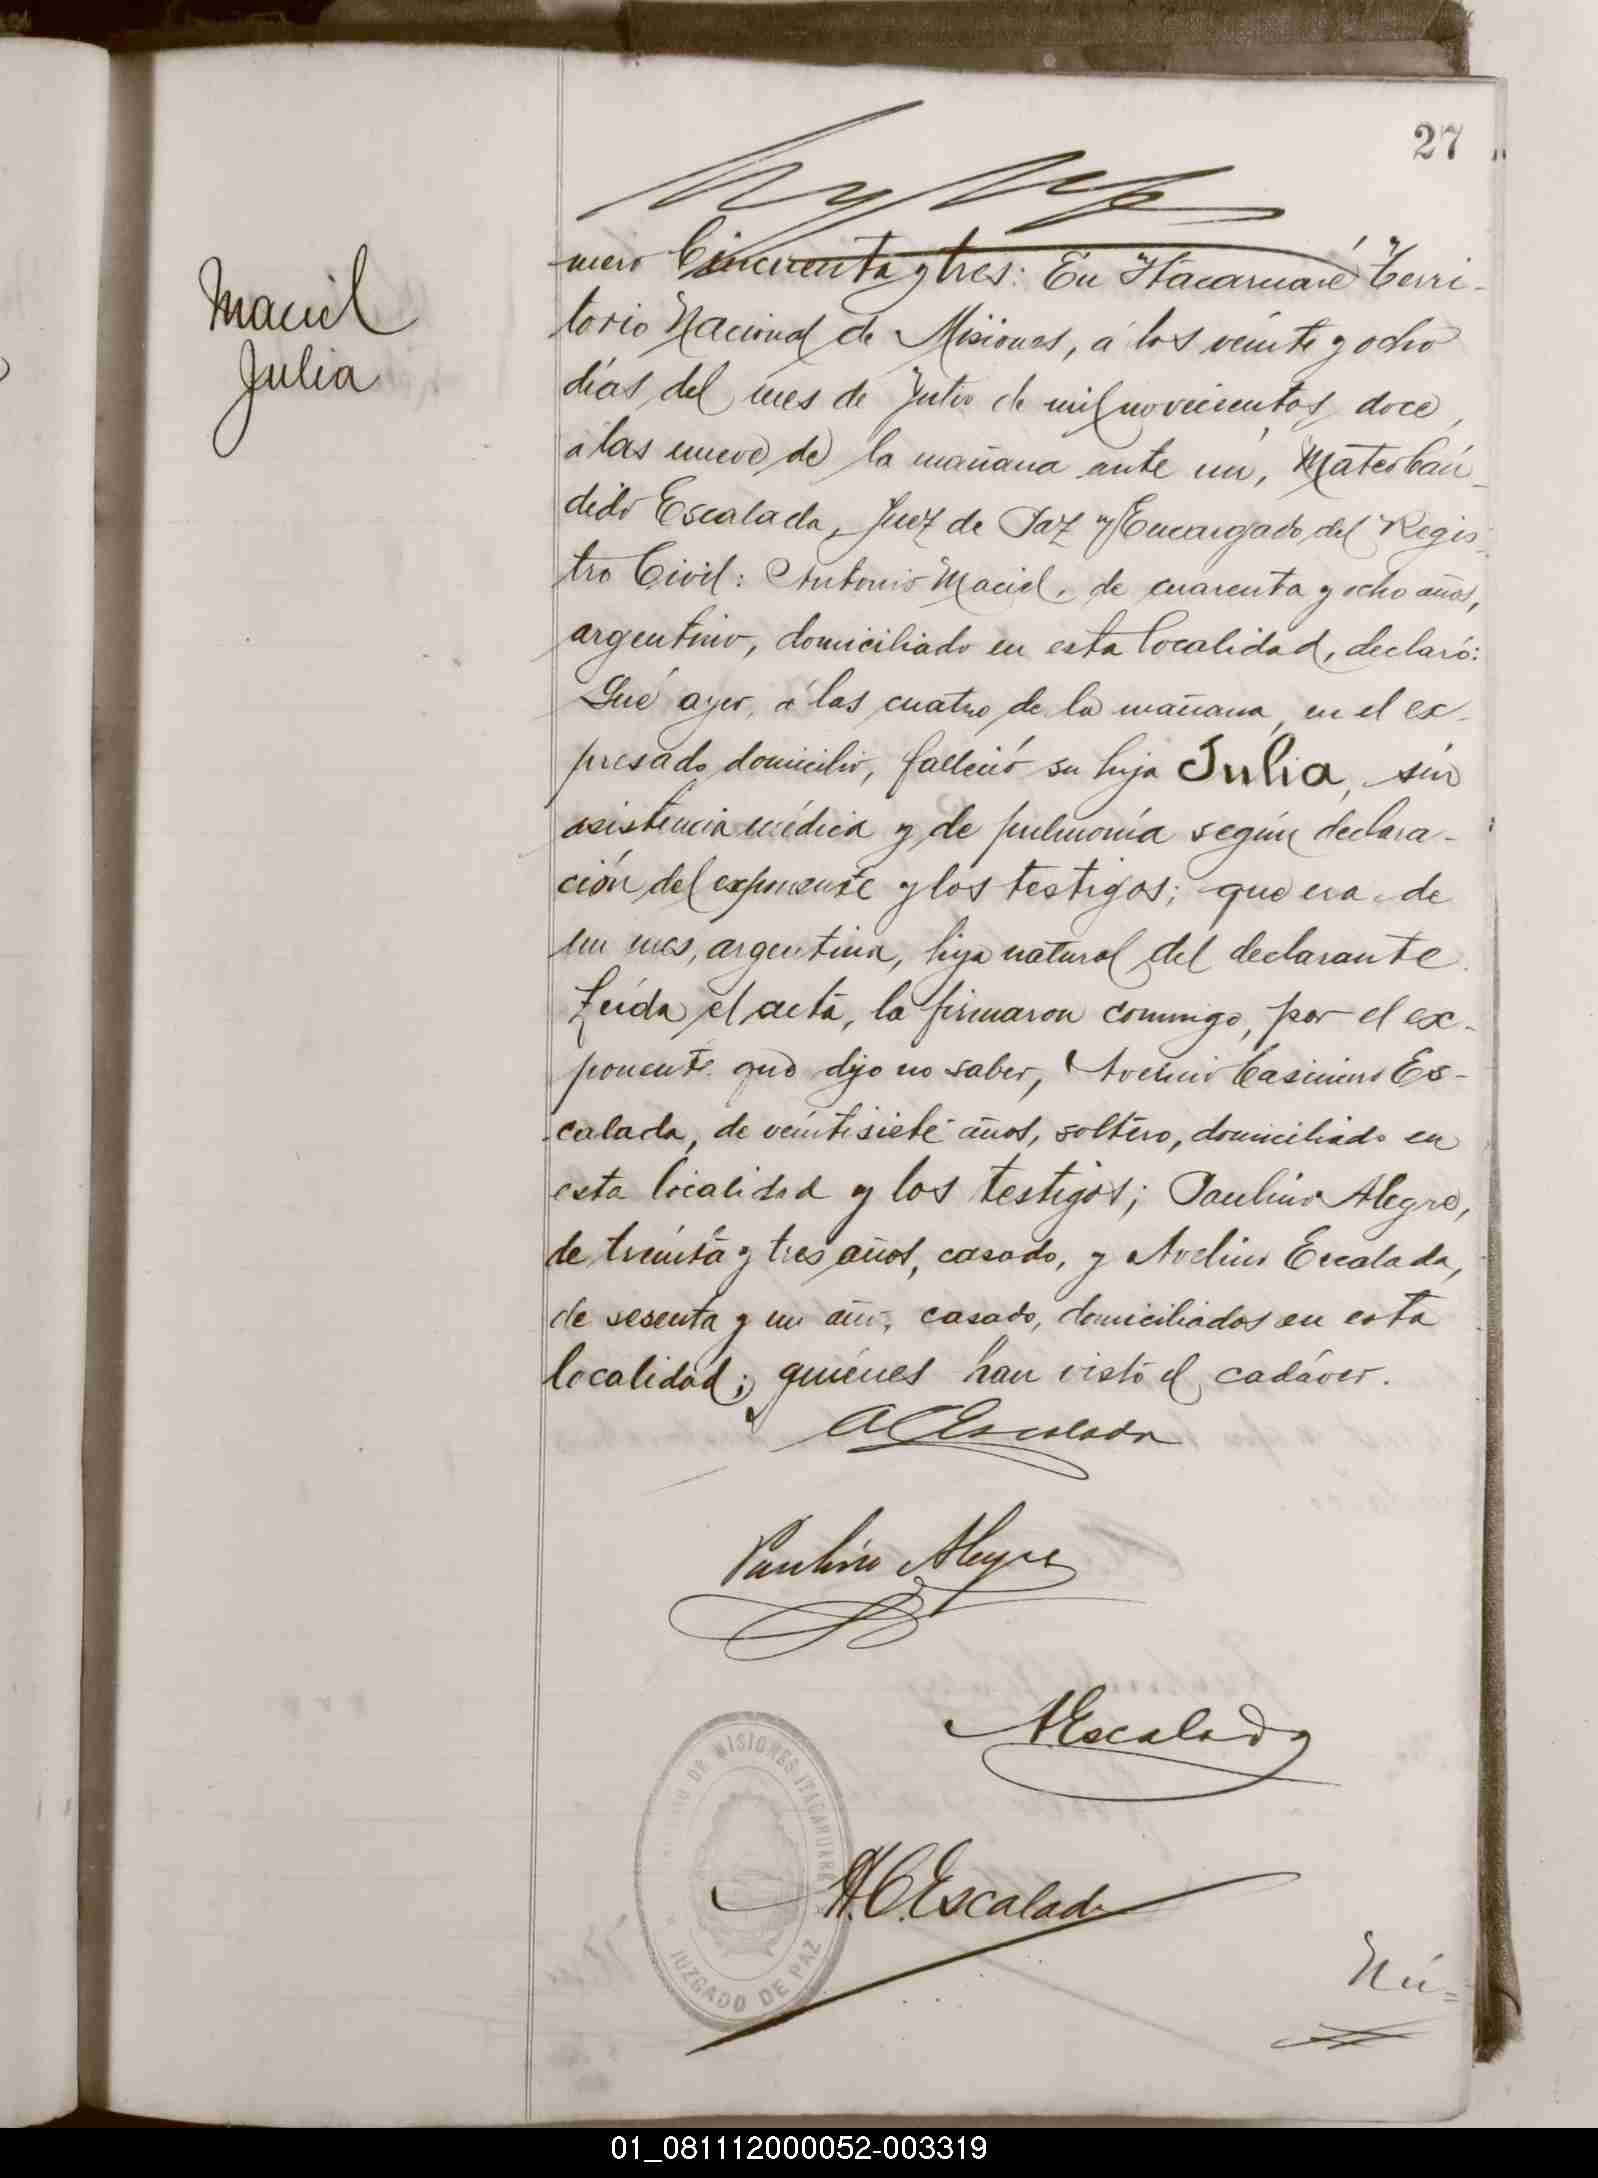 27
Maciel
Julia
mero Cincuenta y tres: En Itacaruaré Terri-
torio Nacional de Misiones, á los veinte y ocho
días del mes de Julio de mil novecientos doce,
a las nueve de la mañana ante mí, Mateo Cán-
dido Escalada, Juez de Paz y Encargado del Regis-
tro Civil: Antonio Maciel, de cuarenta y ocho años,
argentino, domiciliado en esta localidad, declaró:
Qué ayer, á las cuatro de la mañana, en el ex-
presado domicilio, falleció su hija Julia, sin
asistencia médica y de pulmonía según declara-
ción del exponente y los testigos; que era de
un mes, argentina, hija natural del declarante.
Leída el acta, la firmaron conmigo, por el ex-
ponente que dijo no saber, Avelino Casimiro Es-
calada, de veintisiete años, soltero, domiciliado en
esta localidad y los testigos; Paulino Alegre,
de treinta y tres años, casado, y Avelino Escalada,
de sesenta y un año, casado, domiciliados en esta
localidad; quiénes han visto el cadáver.
ACEscalada
Paulino Alegre
AEscalada
DE MISIONES ITACARUARÉ
JUZGADO DE PAZ
M.C.Escalada
Nú=
01_081112000052-003319